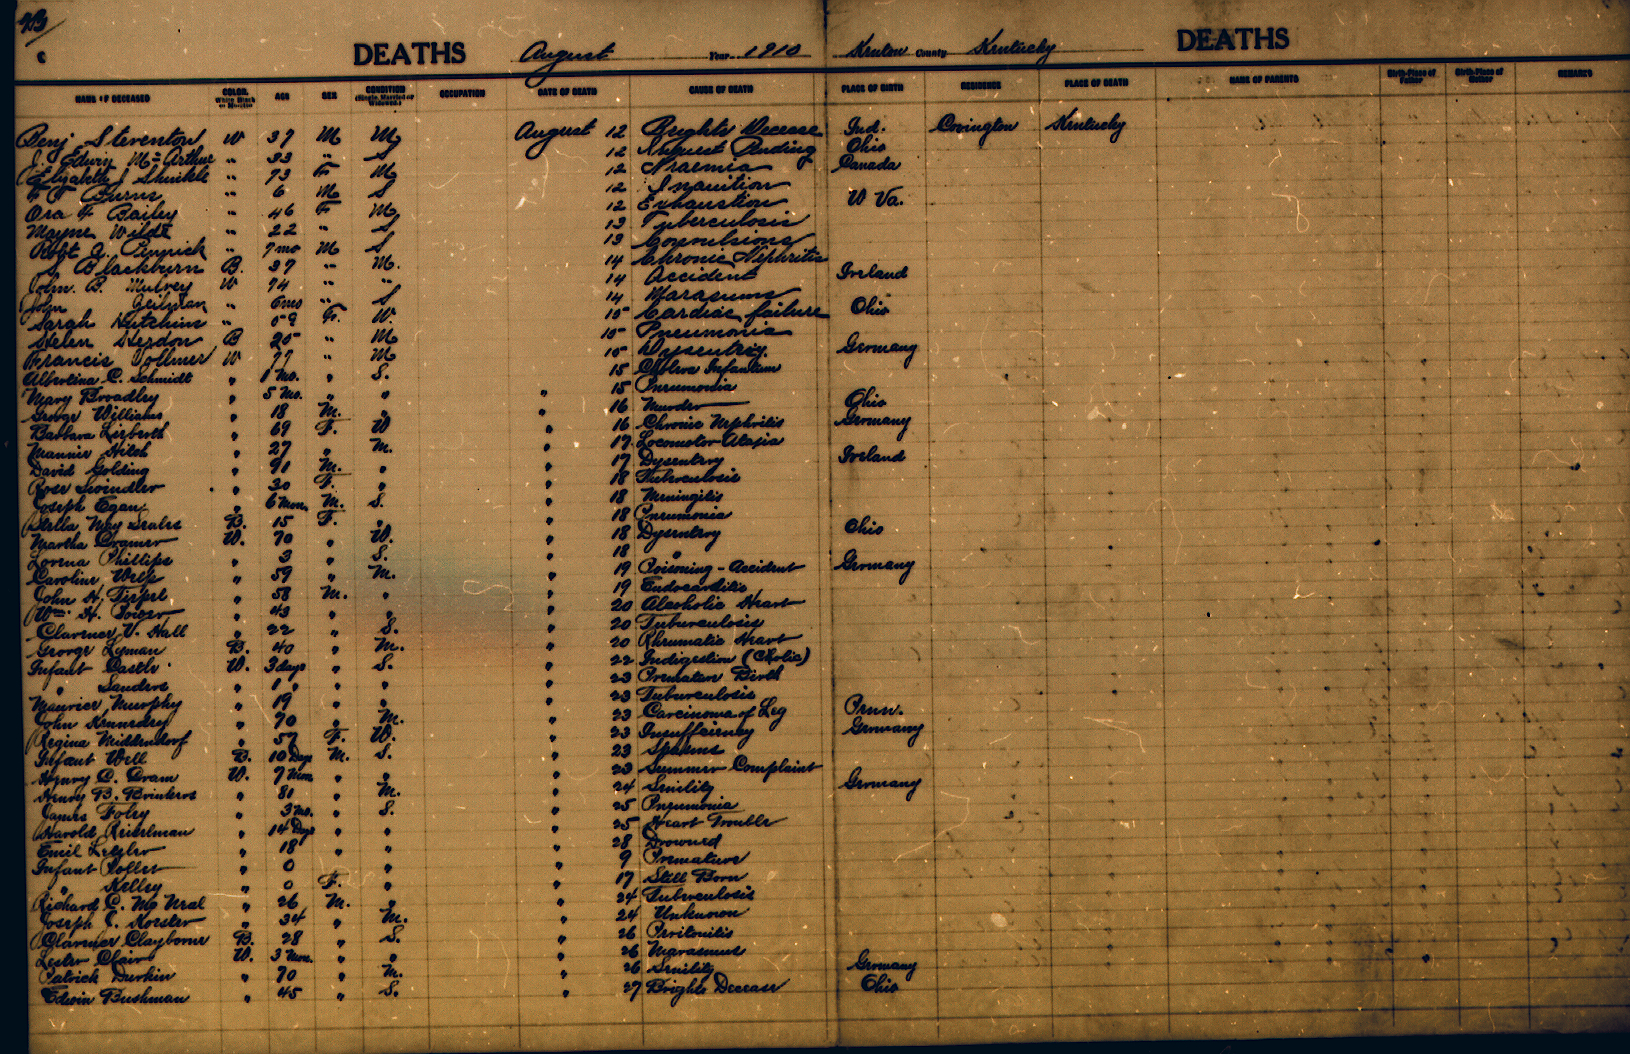 DEATHS August Year 1910 Kenton County Kentucky DEATHS
NAME OF DECEASED COLOR. White Black or Mulatto AGE SEX CONDITION (Single, Married or Widowed.) OCCUPATION DATE OF DEATH CAUSE OF DEATH PLACE OF BIRTH RESIDENCE PLACE OF DEATH NAME OF PARENTS Birth-Place of Father Birth-Place of Mother REMARKS
Benj Steventon W 37 M M August 12 Brights Decease Ind. Covington Kentucky
J. Edwin Mc Arthur " 33 " S 12 Inquest Pending Ohio
Elizabeth J Shinkle " 73 F M 12 Uraemia Canada
F T Burns " 6 M S 12 Inanition
Ora F Bailey " 46 F M 12 Exhaustion W Va.
Mayme Wildt " 22 " S 13 Tuberculosis
Robt J. Pinnick " 7mo M S 13 Convulsions
S Blackburn B. 37 " M. 14 Chronic Nephritis
John. B. Mulvey W 74 " " 14 Accident Ireland
John Geilman " 6mo " S 14 Marasums
Sarah Hutchins " 59 F. W. 15 Cardiac failure Ohio
Helen Herdon B 25 " M 15 Pneumonia
Francis Vollmer W 77 " M 15 Dysentry Germany
Albertina C. Schmidt " 1 Mo. " S. 15 Cholera Infantum
Mary Broadley " 5 Mo. " " " 15 Pneumonia
George Williams " 18 M. " " 16 Murder Ohio
Barbara Lieberth " 69 F. W " 16 Chronic Nephritis Germany
Mannie Hitch " 27 " M. " 17 Locomotor Ataxia
David Golding " 91 M. " " 17 Dysentry Ireland
Rose Swindler " 30 F. " " 18 Tuberculosis
Joseph Egan " 6 Mon. M. S. " 18 Meningitis
Stella May Scales B. 15 F. " " 18 Pneumonia
Martha Cramer W. 70 " W. " 18 Dysentry Ohio
Lorena Phillips " 3 " S. " 18 "
Caroline Welp " 59 " M. " 19 Poisoning - Accident Germany
John H. " 58 M. " " 19 Endocarditis
Wm. H. Tower " 43 " " " 20 Alcoholic Heart
Clarence V. Hall " 22 " S. " 20 Tuberculosis
George Lyman B. 40 " M. " 20 Rheumatic Heart
Infant Castle W. 3 days " S. " 22 Indigestion (Cholic)
" Sanders " 1 " " " " 23 Premature Birth
Maurice Murphy " 19 " " " 23 Tuberculosis
John Kennedy " 70 " M. " 23 Carcinoma of Leg Penn.
Regina Middendorf " 57 F. W. " 23 Insufficiency Germany
Infant Well B. 10 Days M. S. " 23 Spasms
Henry C. Dram W. 7 Mon " " " 23 Summer Complaint
Henry B. Brinkers " 81 " M. " 24 Senility Germany
James Foley " 3 mo. " S. " 25 Pneumonia
Harold " 14 Days " " " 25 Heart Trouble
Emil Letzler " 18 " " " 28 Drowned
Infant Poller " 0 " " " 9 Premature
" Kelley " 0 F. " " 17 Still Born
Richard C. Mc Neal " 26 M. " " 24 Tuberculosis
Joseph C. Koester " 34 " M. " 24 Unknown
Clarence Clayborne B. 28 " S. " 26 Peritonitis
Lester Clair W. 3 Mon. " " " 26 Marasmus
Patrick Durkin " 70 " M. " 26 Senility Germany
Edwin Bushman " 45 " S. " 27 Brights Decease Ohio